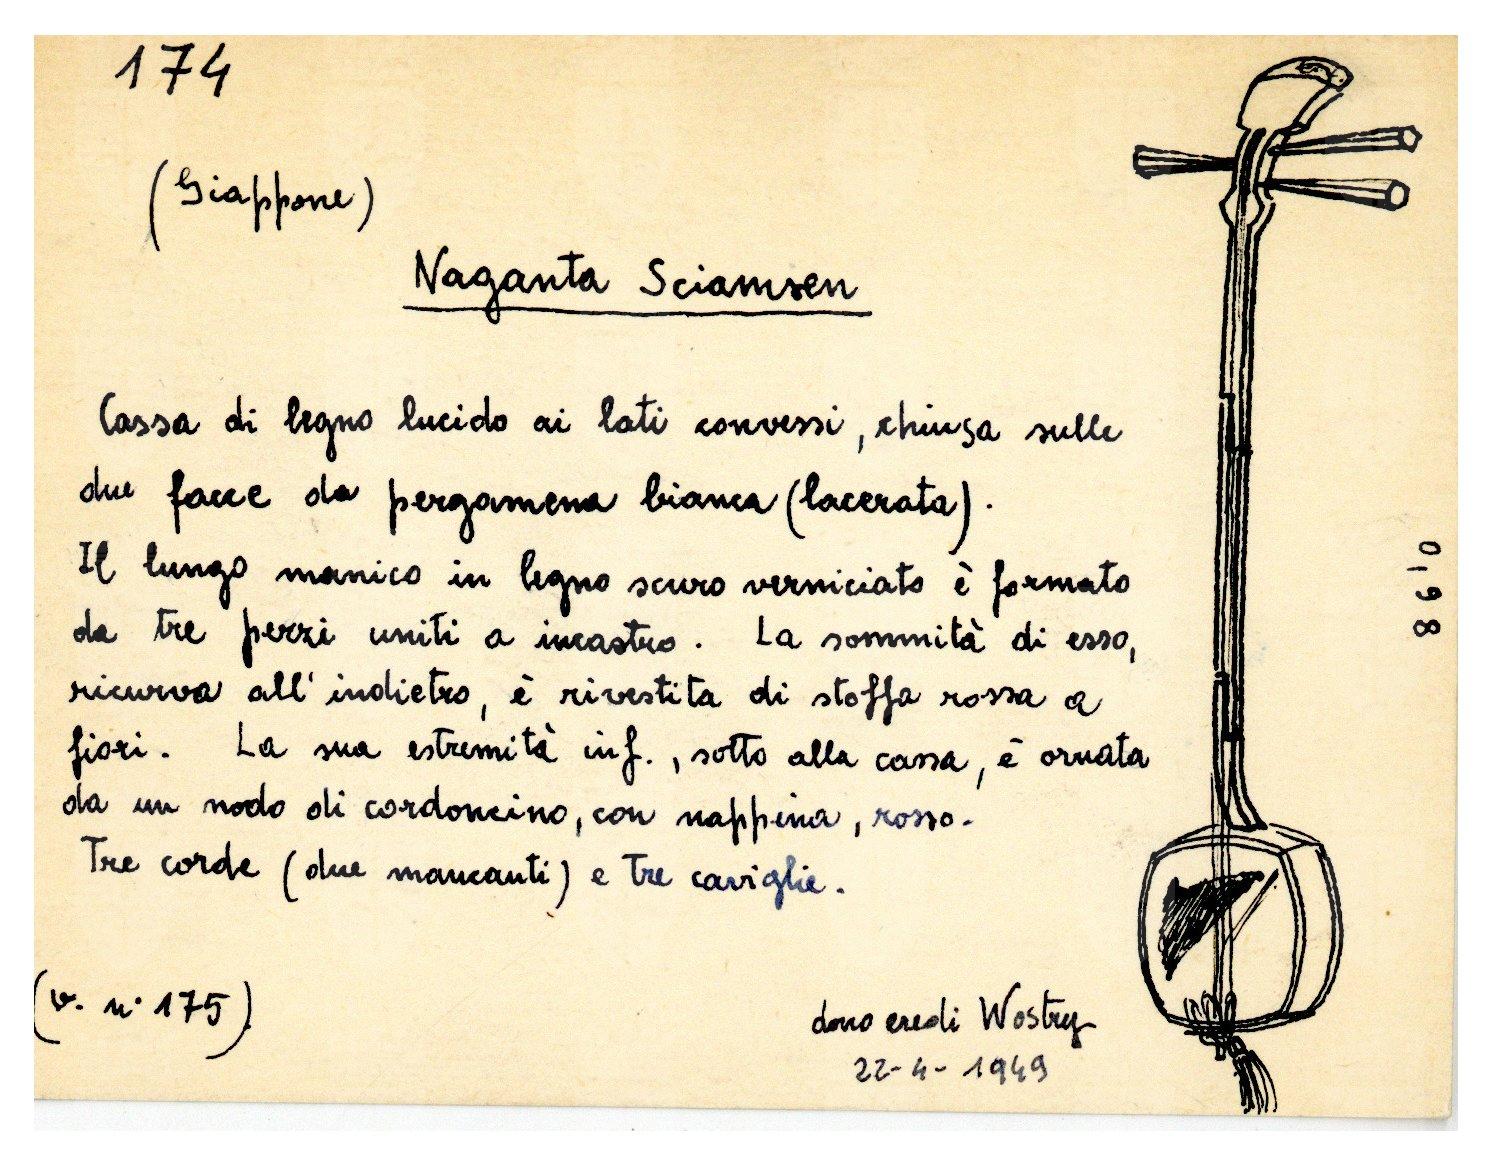 174
(Giappone)
Naganta Sciamsen
Cassa di legno lucido ai lati convessi, chiusa sulle
due facce da pergamena bianca (lacerata).
Il lungo manico in legno scuro verniciato è formato
da tre pezzi uniti a incastro. La sommità di esso,
ricurva all'indietro, è rivestita di stoffa rossa a
fiori. La sua estremità inf., sotto alla cassa, è ornata
da un nodo di cordoncino, con nappina, rosso.
Tre corde (due mancanti) e tre caviglie.
(v. n° 175)
dono eredi Wostry
22-4-1949
0,98